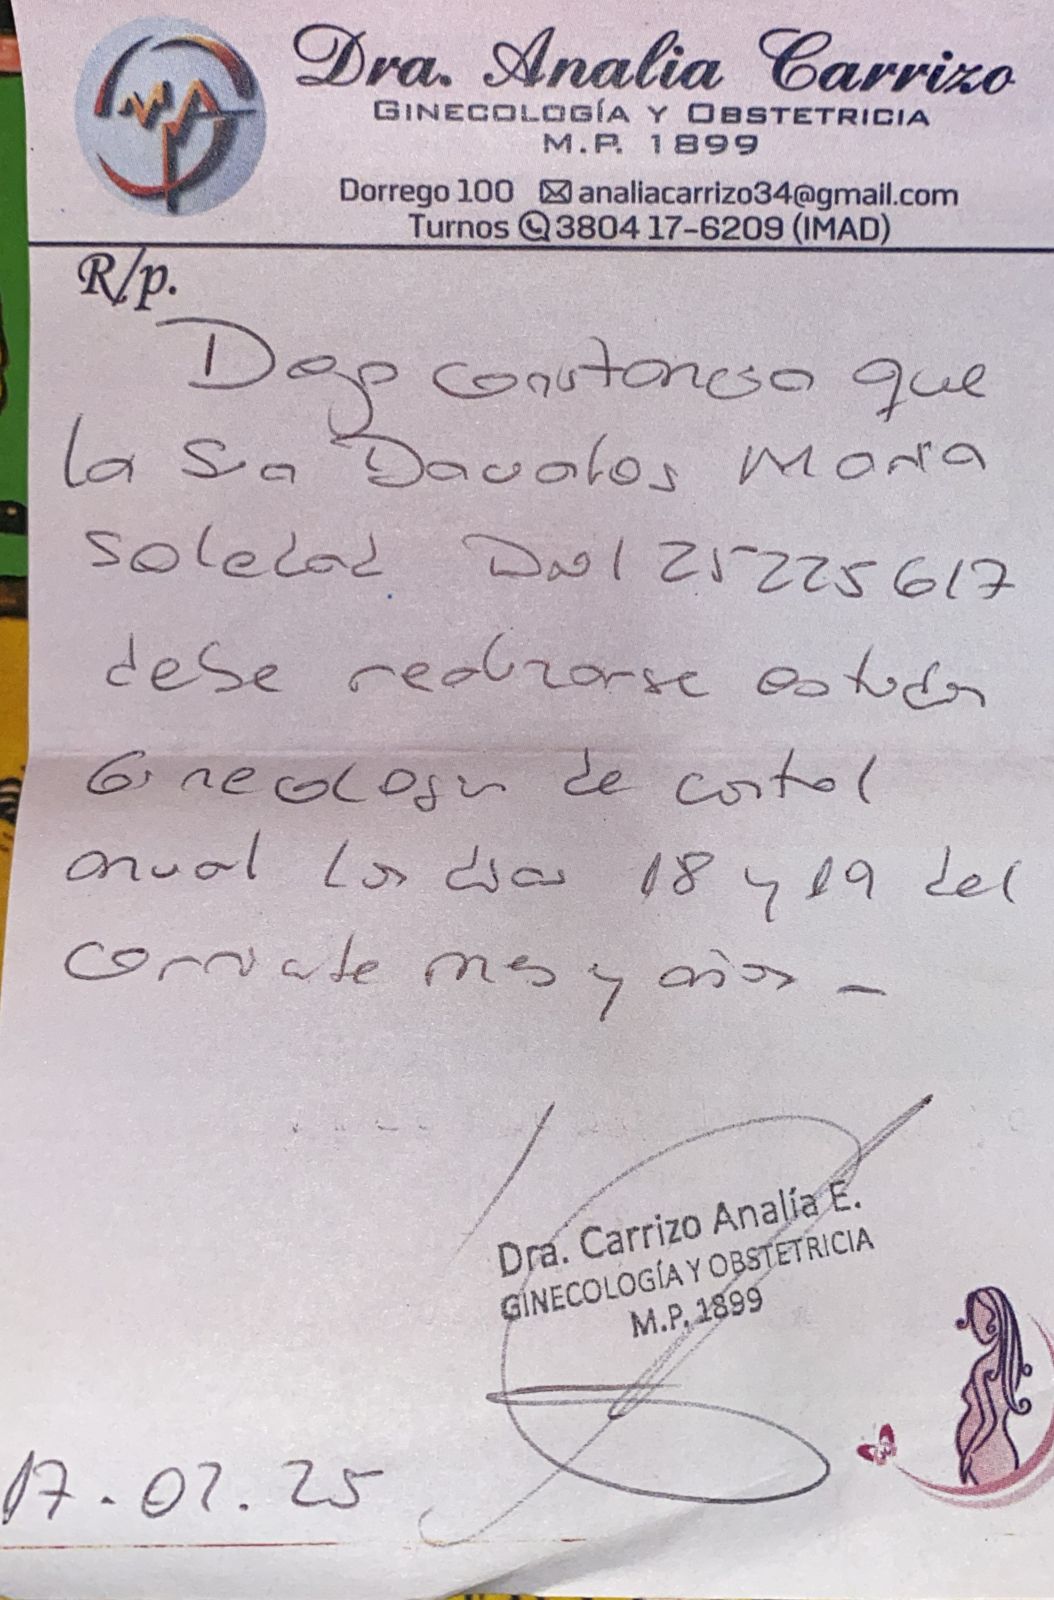 Dra. Analia Carrizo
GINECOLOGÍA Y OBSTETRICIA
M.P. 1899
Dorrego 100 analiacarrizo34@gmail.com
Turnos 3804 17-6209 (IMAD)
R/p.
Dejo constancia que
la Sra Davalos Maria
Soledad DNI 25225617
debe realizarse estudios
Ginecologicos de control
anual los dias 18 y 19 del
corriente mes y años _
Dra. Carrizo Analía E.
GINECOLOGÍA Y OBSTETRICIA
M.P. 1899
17.02.25